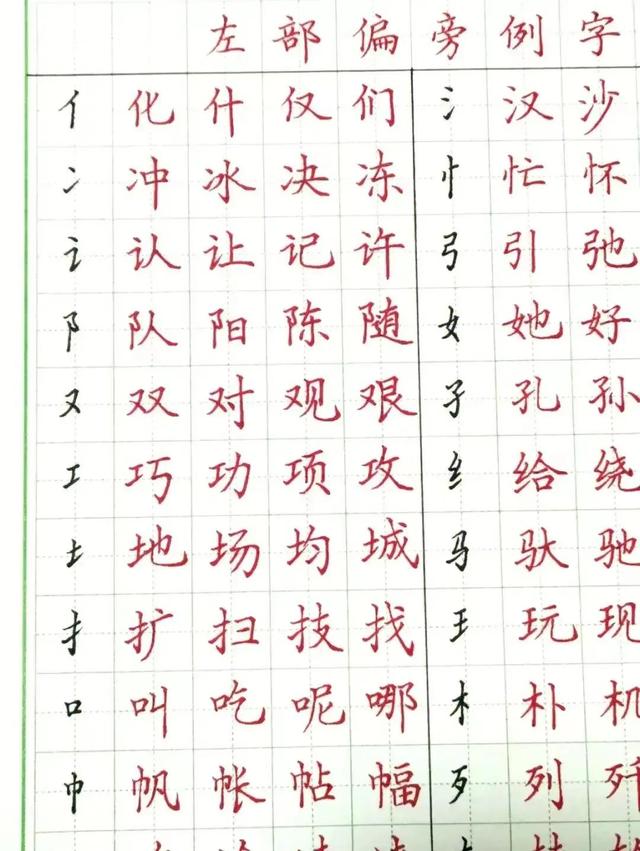 左部偏旁例字
亻 化 什 仅 们 氵 汉 沙
冫 冲 冰 决 冻 忄 忙 怀
讠 认 让 记 许 弓 引 弛
阝 队 阳 陈 随 女 她 好
又 双 对 观 艰 子 孔 孙
工 巧 功 项 攻 纟 给 绕
土 地 场 均 城 马 驮 驰
扌 扩 扫 技 找 王 玩 现
口 叫 吃 呢 哪 木 朴 机
巾 帆 帐 帖 幅 歹 列 歼